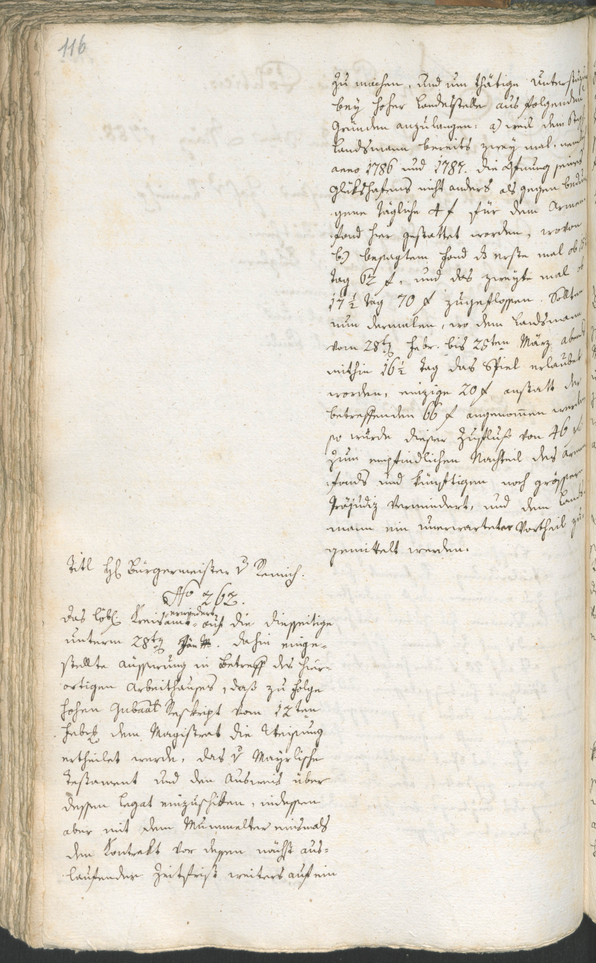 116
zu machen, und um thätige Unterstüzung
bey hoher Landesstelle aus folgenden
Gründen anzulangen: a) weil dem
Landsmann bereits zwey mal,
anno 1786 und 1787. die Öfnung seines
Glükshafens nicht anders als gegen
gene tägliche 4 f für den Armen
fond hier gestattet worden, wovon
b) besagtem Fond das erste mal ob
tag 62 f, und das zweyte mal ob
17 1/2 tag 70 f zugeflossen. Sollten
nun dermalen, wo dem Landsmann
vom 28ten Febr. bis 25ten März
mithin 16 1/2 tag das Spiel erlaubt
worden, einzige 20 f anstatt der
betreffenden 66 f angenommen werden
so würde dieser Zufluß von 46 f
zum empfindlichen Nachteil des Armen
fonds und künftigen noch größern
Präjudiz vermindert, und dem Lands
mann ein unerwarteter Vortheil zu
gemittelt werden.
Titl Hl Bürgermeister v Remich.
No 262.
erwiedert
Das löbl Kreisamt auf die diesseitige
unterm 28ten dahin einge-
stellte Äusserung in Betreff des hier-
ortigen Arbeithauses, daß zu Folge
hohen Gubnal Reskript vom 12ten
Febr dem Magistrat die Weisung
ertheilet werde, das v Mayrlische
Testament und den Ausweis über
dessen Legat einzuschiken, indessen
aber mit dem Mummelter niemals
den Kontrakt vor dessen nächst aus-
laufender Zeitsfrist weiters auf ein